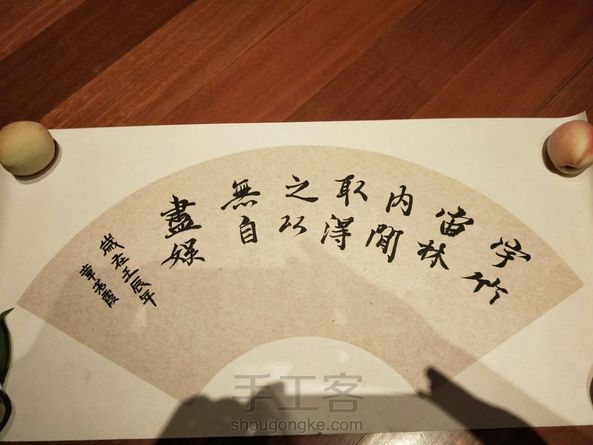 宇竹
宙林
内閒
取得
之以
無自
盡娱
歲在壬辰年
手工客
shougongke.com